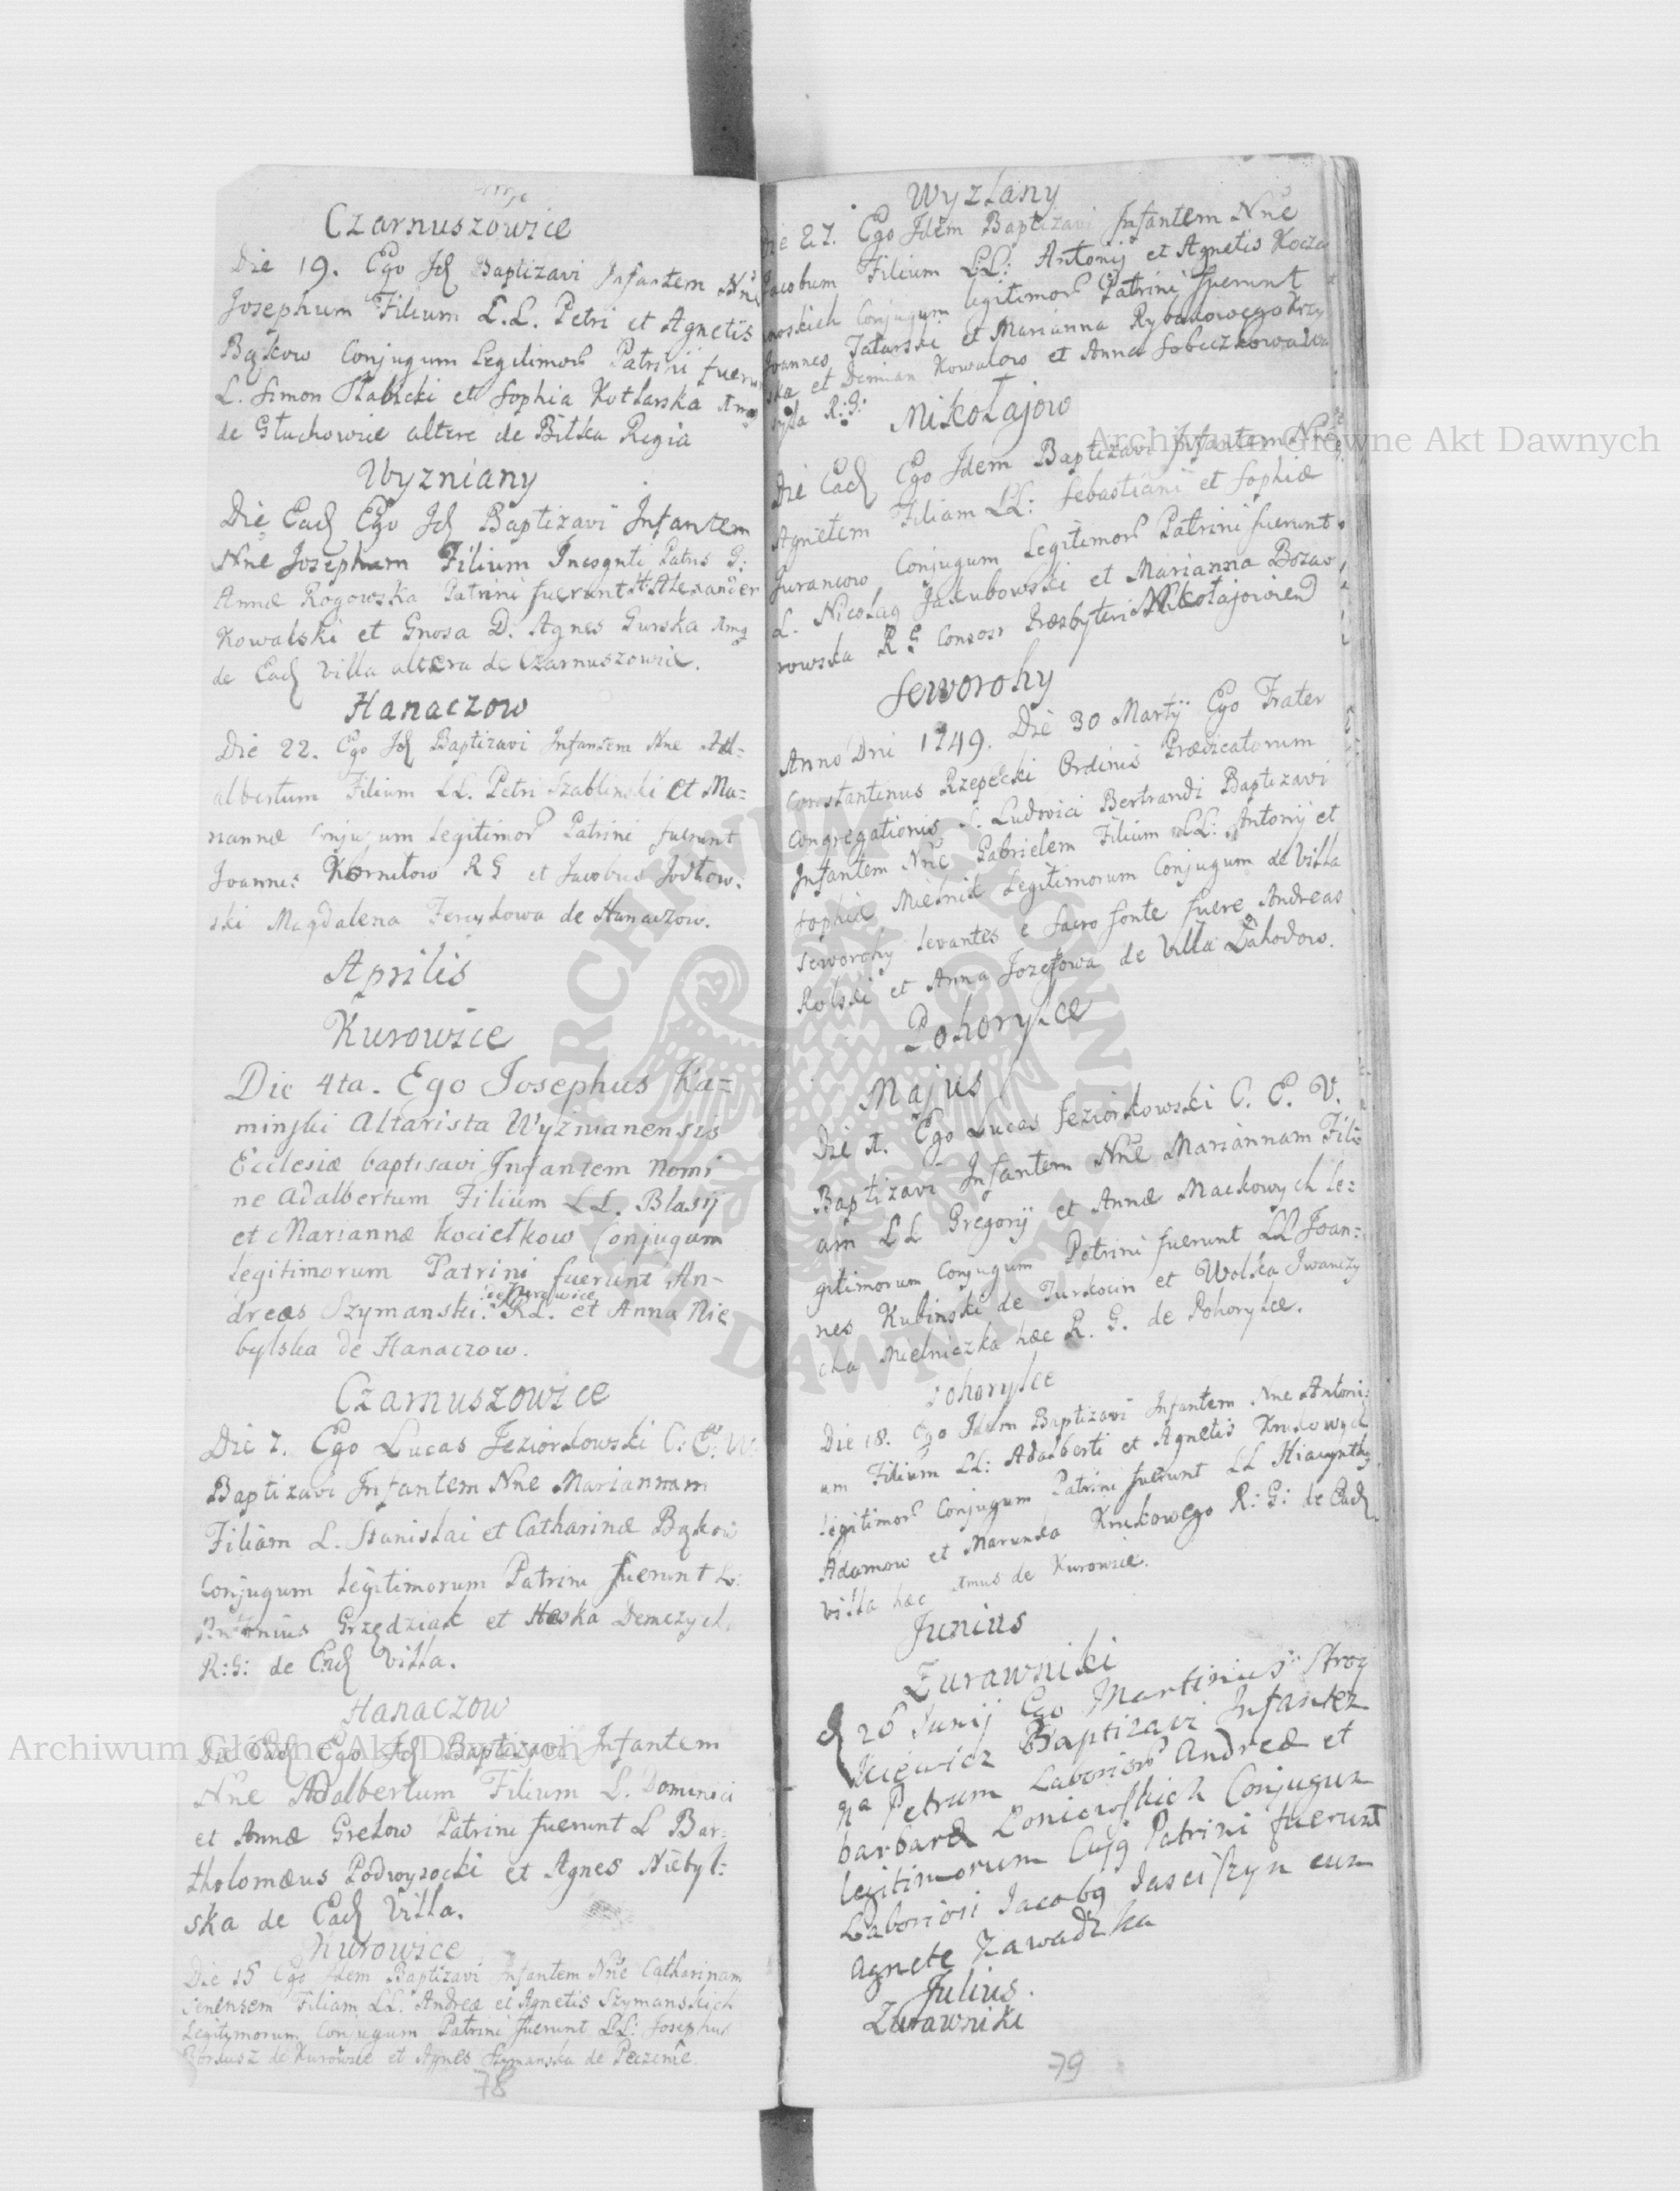 Czarnuszowice
Die 19. Ego Id Baptizavi Infantem Nne
Josephum Filium L.L. Petri et Agnetis
Bąkow Conjugum Legitimor Patrini fuerunt
L. Simon Słabicki et Sophia Kotlarska Amo
de Głuchowice altere de Biłka Regia
Wyzniany
Die Ead Ego Id Baptizavi Infantem
Nne Josephum Filium Incogniti Patris G:
Annæ Rogowska Patrini fuerunt Alexander
Kowalski et Gnosa D. Agnes Gurska Amo
de Ead Villa altera de Czarnuszowice.
Hanaczow
Die 22. Ego Id Baptizavi Infantem Nne Ad=
albertum Filium LL. Petri Szablinski et Ma=
riannæ Conjugum Legitimor Patrini fuerunt
Joannes Kornilow R G et Jacobus Jodłow=
ski Magdalena de Hanaczow.
Aprilis
Kurowice
Die 4ta. Ego Josephus Ka=
minski Altarista Wyznianensis
Ecclesiæ baptisavi Infantem Nomi
ne Adalbertum Filium LL. Blasij
et Mariannæ Kociełkow Conjugum
legitimorum Patrini fuerunt An-
de Kurowice
dreas Szymanski. RL. et Anna Nie
bylska de Hanaczow.
Czarnuszowice
Die 7. Ego Lucas Jeziorkowski C. E. W.
Baptizavi Infantem Nne Mariannam
Filiam L. Stanislai et Catharinæ Bąkow
Conjugum legitimorum Patrini fuerunt L.
Antonius Grzędziak et Haska Demczych
R: G: de Ead Villa.
Hanaczow
Die Ead Ego Id Baptizavi Infantem
Nne Adalbertum Filium L. Dominici
et Annæ Grelow Patrini fuerunt L Bar=
tholomæus Podwysocki et Agnes Niebyl=
ska de Ead Villa.
Kurowice
Die 15 Ego Idem Baptizavi Infantem Nne Catharinam
Senensem Filiam LL. Andreæ et Agnetis Szymanskich
Legitymorum Conjugum Patrini fuerunt LL: Josephus
de Kurowice et Agnes Szymanska de Peczenie.
78
Wyzlany
Die 27. Ego Idem Baptizavi Infantem Nne
Jacobum Filium LL: Antonij et Agnetis Kocza
nowskich Conjugum legitimor Patrini fuerunt
Joannes Tatarski et Marianna Rybakowego Krzy
ska et Demian Kowalow et Anna Sobeczkowa
R: G:
Mikołajow
Die Ead Ego Idem Baptizavi Infantem Nne
Agnetem Filiam LL: Sebastiani et Sophiæ
Jurancow Conjugum Legitimor Patrini fuerunt
L. Nicolaq Jakubowski et Marianna Bozaw
rowska R G Consor Præsbyteri Mikołajowien
Seworohy
Anno Dni 1749. Die 30 Martij Ego Frater
Constantinus Rzepecki Ordinis Prædicatorum
Congregationis S. Ludovici Bertrandi Baptizavi
Infantem Nne Gabrielem Filium LL: Antonij et
Sophiæ Mielnik Legitimorum Conjugum de Villa
Seworohy levantes e sacro fonte fuere Andreas
Rolski et Anna Jozefowa de Villa Łahodow.
Pohorylce
Majus
Die 1. Ego Lucas Jeziorkowski C. E. V.
Baptizavi Infantem Nne Mariannam Fili
am LL Gregorij et Annæ Mackowych Le=
gitimorum Conjugum Patrini fuerunt LL Joan=
nes Kubinski de Turkocin et Wolska Iwanczy
cha Mielniczka hæc R. G. de Pohorylce.
Pohorylce
Die 18. Ego Idem Baptizavi Infantem Nne Antoni=
um Filium LL: Adalberti et Agnetis Krukowych
legitimor Conjugum Patrini fuerunt LL Hiacynthq
Adamow et Maruska Krukowego R: G: de Ead
Villa hæc de Kurowice.
Junius
Zurawniki
d 26 Junij Ego Martinus Stroy
kiewicz Baptizavi Infantez
na Petrum Laborior Andreæ et
barbaræ Łoniewskich Conjuguz
legitimorum Cujq Patrini fuerunt
Laboriosi Jacobq Jasciszyn cuz
Agnete Zawadzka
Julius.
Zurawniki
79
Archiwum Główne Akt Dawnych
Archiwum Główne Akt Dawnych
ARCHIWUM GŁÓWNE AKT DAWNYCH